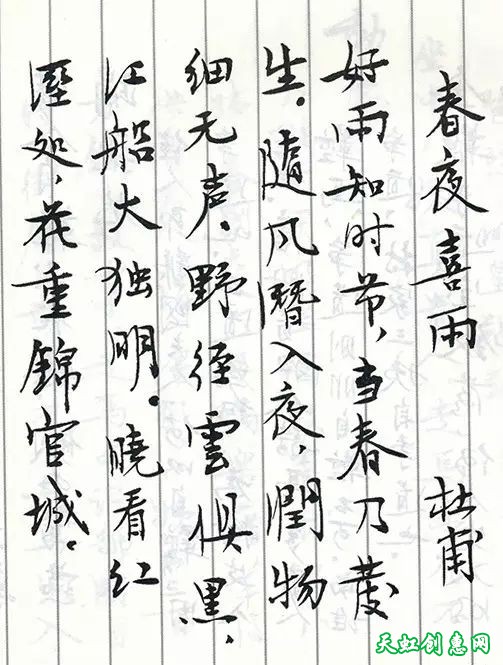 春夜喜雨 杜甫
好雨知时节，当春乃發
生。随风潛入夜，潤物
细无声。野径雲俱黑，
江船火独明。曉看红
溼处，花重錦官城。
天虹创惠网